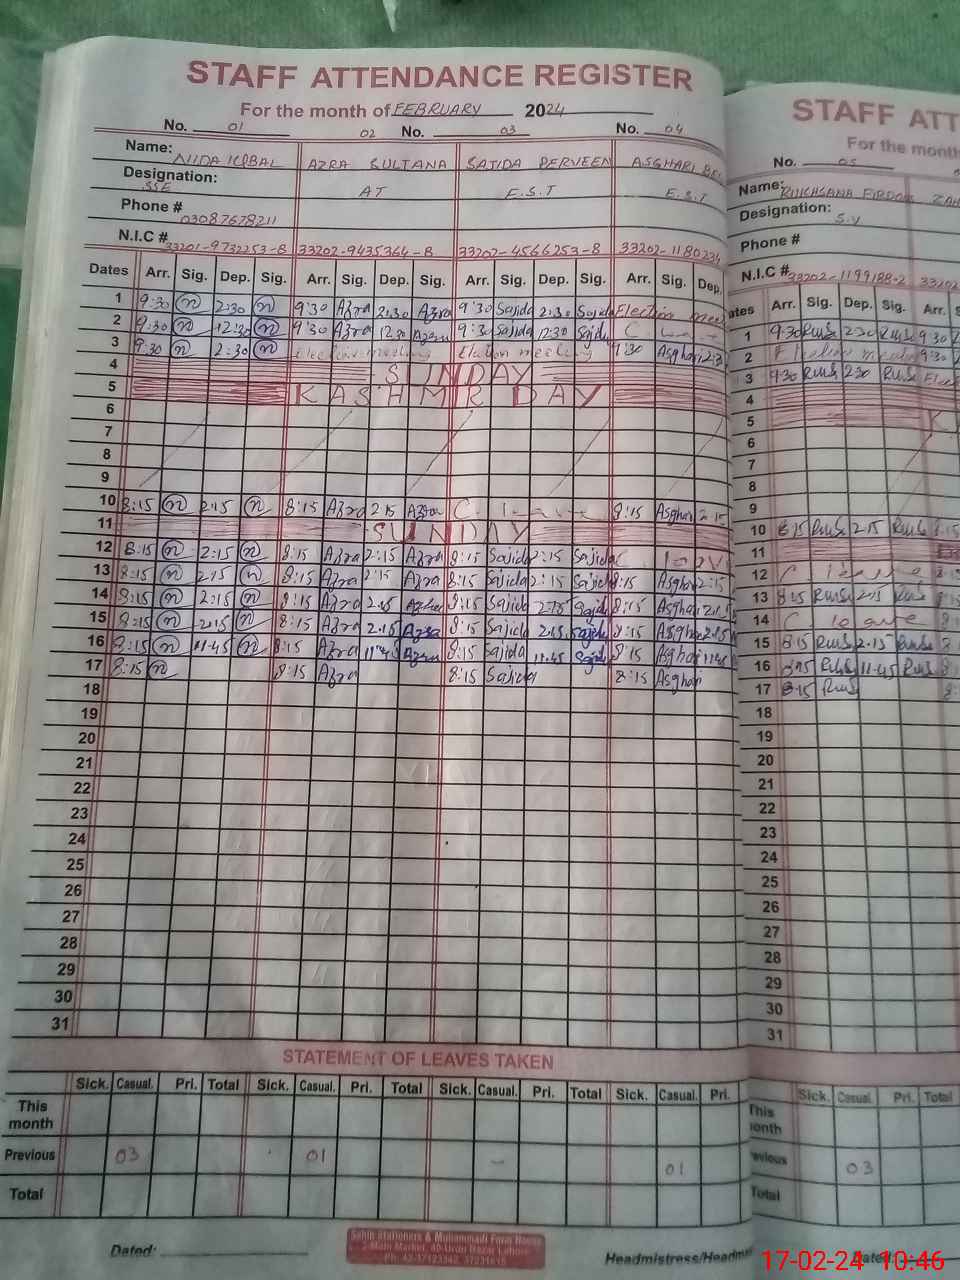 STAFF ATTENDANCE REGISTER
For the month of FEBRUARY 2024
No. 01 02 No. 03 No. 04
Name: NIDA IQBAL AZRA SULTANA SAJIDA PERVEEN ASGHARI
Designation: SSE AT E.S.T E.S.T
Phone # 03087678211
N.I.C # 33201-9732253-8 33202-9435364-8 33202-4566253-8 33202-1180234
Dates Arr. Sig. Dep. Sig. Arr. Sig. Dep. Sig. Arr. Sig. Dep. Sig. Arr. Sig. Dep.
1 9:30 n 2:30 n 9:30 Azra 2:30 Azra 9:30 Sajida 2:30 Sajida Election
2 9:30 n 12:30 n 9:30 Azra 12:30 Azra 9:30 Sajida 12:30 Sajida C
3 9:30 n 2:30 n Election meeting Election meeting 9:30 Asghari 2:30
4 SUNDAY
5 KASHMIR DAY
6
7
8
9
10 8:15 n 2:15 n 8:15 Azra 2:15 Azra C. leave 8:15 Asghari 2:15
11 SUNDAY
12 8:15 n 2:15 n 8:15 Azra 2:15 Azra 8:15 Sajida 2:15 Sajida C
13 8:15 n 2:15 n 8:15 Azra 2:15 Azra 8:15 Sajida 2:15 Sajida 8:15 Asghari 2:15
14 8:15 n 2:15 n 8:15 Azra 2:15 Azra 8:15 Sajida 2:15 Sajida 8:15 Asghari 2:15
15 8:15 n 2:15 n 8:15 Azra 2:15 Azra 8:15 Sajida 2:15 Sajida 8:15 Asghari 2:15
16 8:15 n 11:45 n 8:15 Azra 11:45 Azra 8:15 Sajida 11:45 Sajida 8:15 Asghari 11:45
17 8:15 n 8:15 Azra 8:15 Sajida 8:15 Asghari
18
19
20
21
22
23
24
25
26
27
28
29
30
31
STATEMENT OF LEAVES TAKEN
Sick. Casual. Pri. Total Sick. Casual. Pri. Total Sick. Casual. Pri. Total Sick. Casual. Pri.
This month
Previous 03 01 - 01
Total
Dated:
Headmistress/Headm
Sahib Stationers & Muhammadi Form House
Main Market, 40-Urdu Bazar Lahore
STAFF ATT
For the month
No. 05
Name: RUKHSANA FIRDOS
Designation: S.V
Phone #
N.I.C # 33202-1199188-2 33202
ates Arr. Sig. Dep. Sig. Arr.
1 9:30 2:30 9:30
2 Election 9:30
3 9:30 2:30
4
5
6
7
8
9
10 8:15 2:15 8:15
11
12 C leave
13 8:15 2:15
14 C leave
15 8:15 2:15
16 8:15 11:45
17 8:15
18
19
20
21
22
23
24
25
26
27
28
29
30
31
Sick. Casual. Pri. Total
This
onth
evious 03
Total
Dated:
17-02-24 10:46